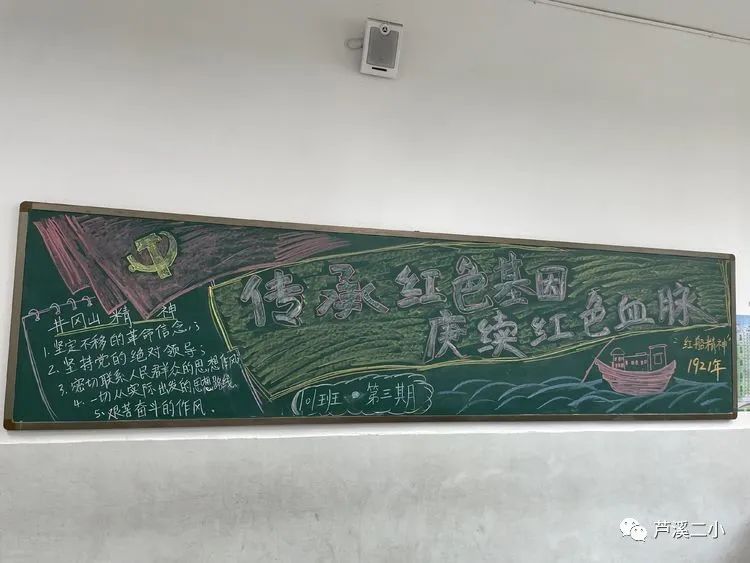 井冈山精神
1.坚定不移的革命信念；
2.坚持党的绝对领导；
3.密切联系人民群众的思想作风；
4.一切从实际出发的思想路线；
5.艰苦奋斗的作风.
传承红色基因
庚续红色血脉
101班 第三期
红船精神
1921年
芦溪二小